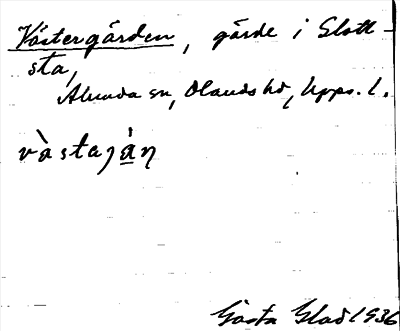 Västergården, gärde i Slott-
sta,
Alunda sn, Olands hd, Upps. l.
vàstajá̱ŋ
Gösta Glad 1936